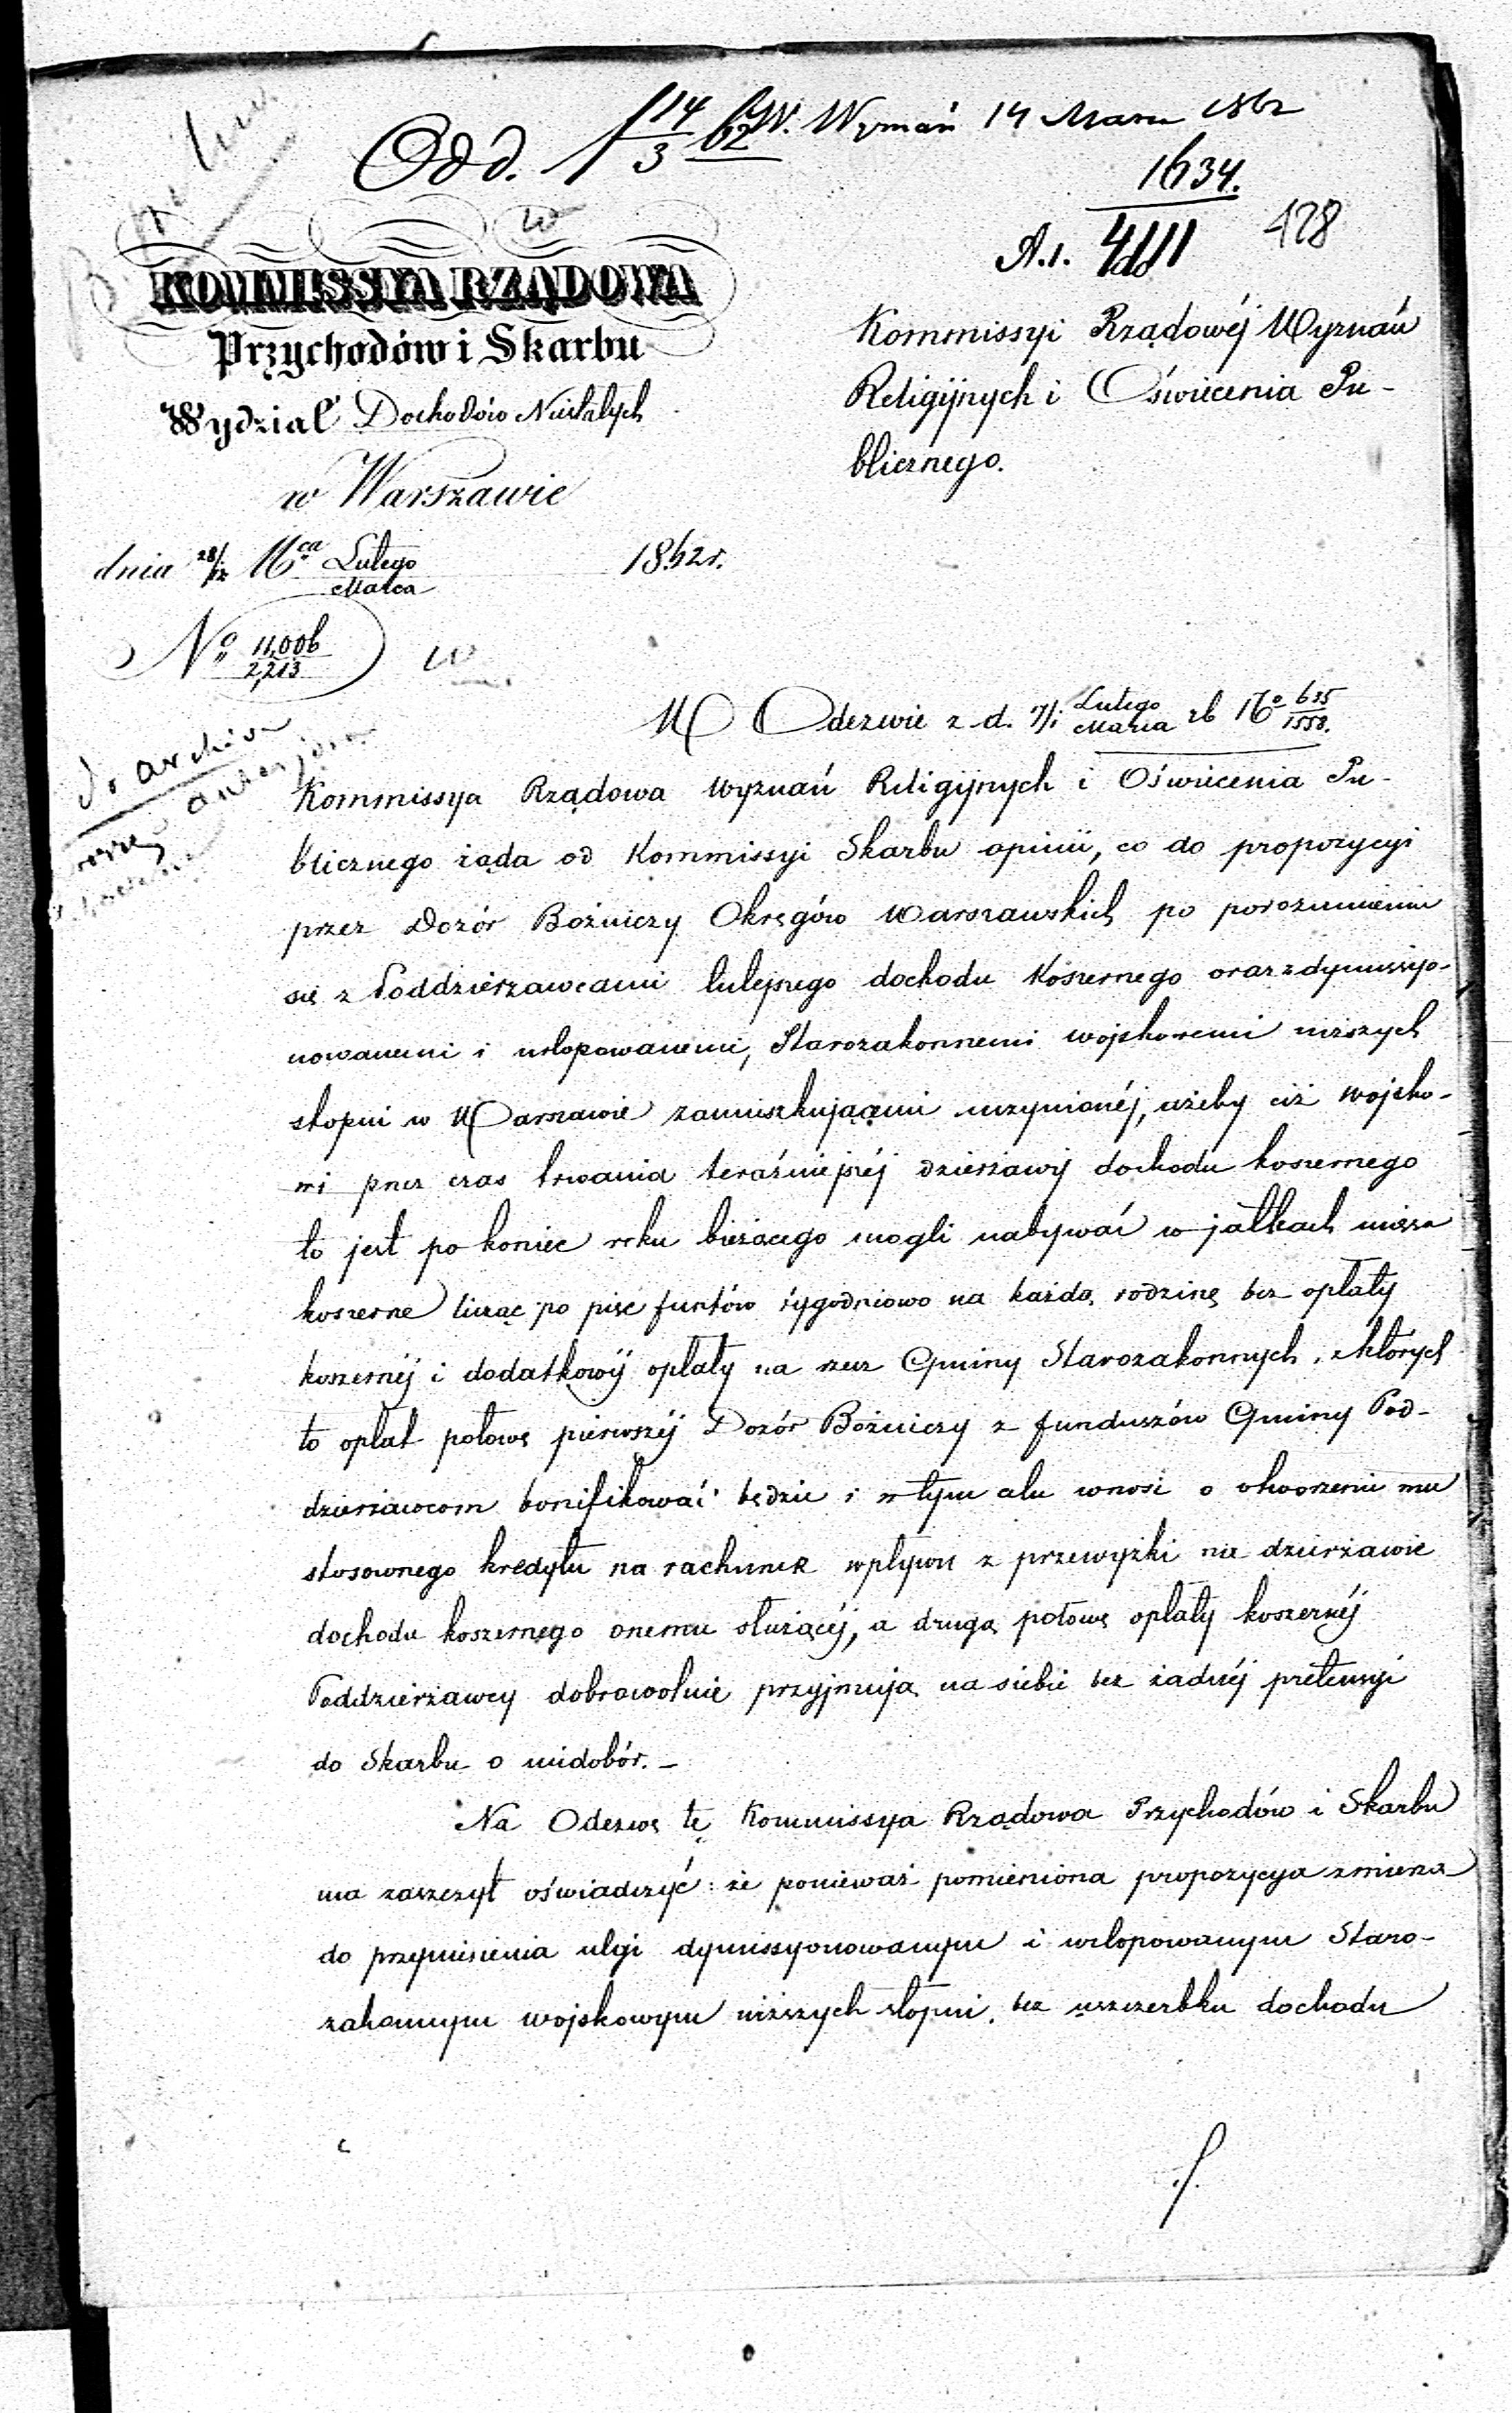 Odd. 1 14/3 62 W. Wyznań 14 Marca 1862
1634.
A.1. 428
KOMMISSYA RZĄDOWA
Przychodów i Skarbu
Wydział Dochodów Niestałych
w Warszawie
dnia 28/12 Mca Lutego/Marca 1862 r.
No 11,006/2,213
w
Kommissyi Rządowéj Wyznań
Religijnych i Oświecenia Pu-
blicznego.
do archiwu
W Odezwie z d. 17/1 Lutego/Marca rb No 635/1558.
Kommissya Rządowa Wyznań Religijnych i Oświecenia Pu-
blicznego żąda od Kommissyi Skarbu opinii, co do propozycyi
przez Dozór Bóżniczy Okręgów Warszawskich po porozumieniu
się z Poddzierżawcami tutejszego dochodu koszernego oraz z dymissyo-
nowanemi i urlopowanemi, Starozakonnemi wojskowemi niższych
stopni w Warszawie zamieszkującemi uczynionéj, ażeby ciż wojsko-
wi przez czas trwania teraźniejszéj dzierżawy dochodu koszernego
to jest po koniec roku bieżącego mogli nabywać w jatkach mięso
koszerne licząc po pięć funtów tygodniowo na każdą rodzinę bez opłaty
koszernéj i dodatkowéj opłaty na rzecz Gminy Starozakonnych, z których
to opłat połowę pierwszéj Dozór Bóżniczy z funduszów Gminy Pod-
dzierżawcom bonifikować będzie i w tym celu wnosi o otworzenie mu
stosownego kredytu na rachunek wpływu z przewyżki na dzierżawie
dochodu koszernego onemu służącéj, a drugą połowę opłaty koszernéj
Poddzierżawcy dobrowolnie przyjmują na siebie bez żadnéj pretensyi
do Skarbu o niedobór. –
Na Odezwę tę Kommissya Rządowa Przychodów i Skarbu
ma zaszczyt oświadczyć: że ponieważ pomieniona propozycya zmierza
do przyniesienia ulgi dymissyonowanym i urlopowanym Staro-
zakonnym wojskowym niższych stopni, bez uszczerbku dochodu